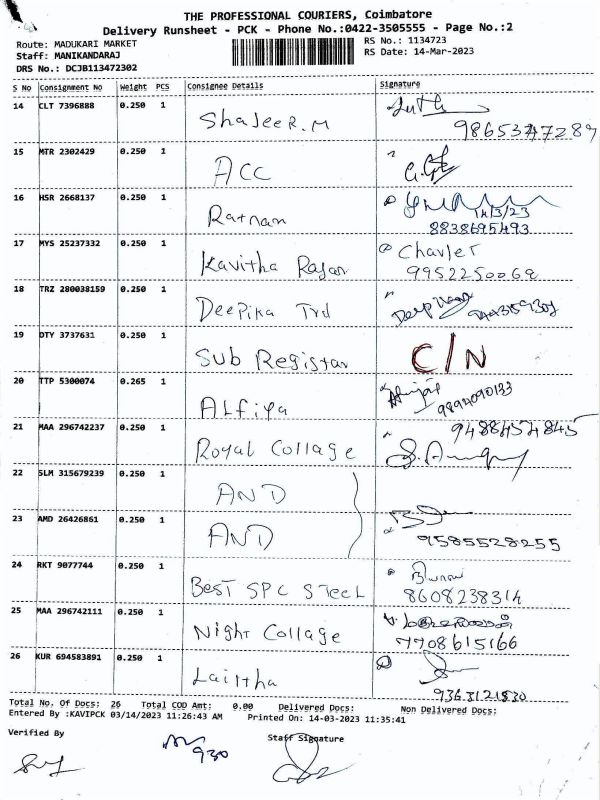 THE PROFESSIONAL COURIERS, Coimbatore
Delivery Runsheet - PCK - Phone No.:0422-3505555 - Page No.:2
Route: MADUKARI MARKET RS No.: 1134723
Staff: MANIKANDARAJ RS Date: 14-Mar-2023
DRS No.: DCJB113472302
S No Consignment No Weight PCS Consignee Details Signature
14 CLT 7396888 0.250 1 Shajeer.M
9865347289
15 MTR 2302429 0.250 1 ACC
16 HSR 2668137 0.250 1 Ratnam 14/3/23
8838695493
17 MYS 25237332 0.250 1 Kavitha Rajan Charles
9952250069
18 TRZ 280038159 0.250 1 Deepika Trd
19 DTY 3737631 0.250 1 Sub Registar C/N
20 TTP 5300074 0.265 1 Alfiya 9894090133
21 MAA 296742237 0.250 1 Royal Collage 9488454845
22 SLM 315679239 0.250 1 AND
23 AMD 26426861 0.250 1 AND 9585528255
24 RKT 9077744 0.250 1 Best SPC Steel 8608238314
25 MAA 296742111 0.250 1 Night Collage 7708615166
26 KUR 694583891 0.250 1 Lalitha 9363121830
Total No. Of Docs: 26 Total COD Amt: 0.00 Delivered Docs: Non Delivered Docs:
Entered By :KAVIPCK 03/14/2023 11:26:43 AM Printed On: 14-03-2023 11:35:41
Verified By 930 Staff Signature